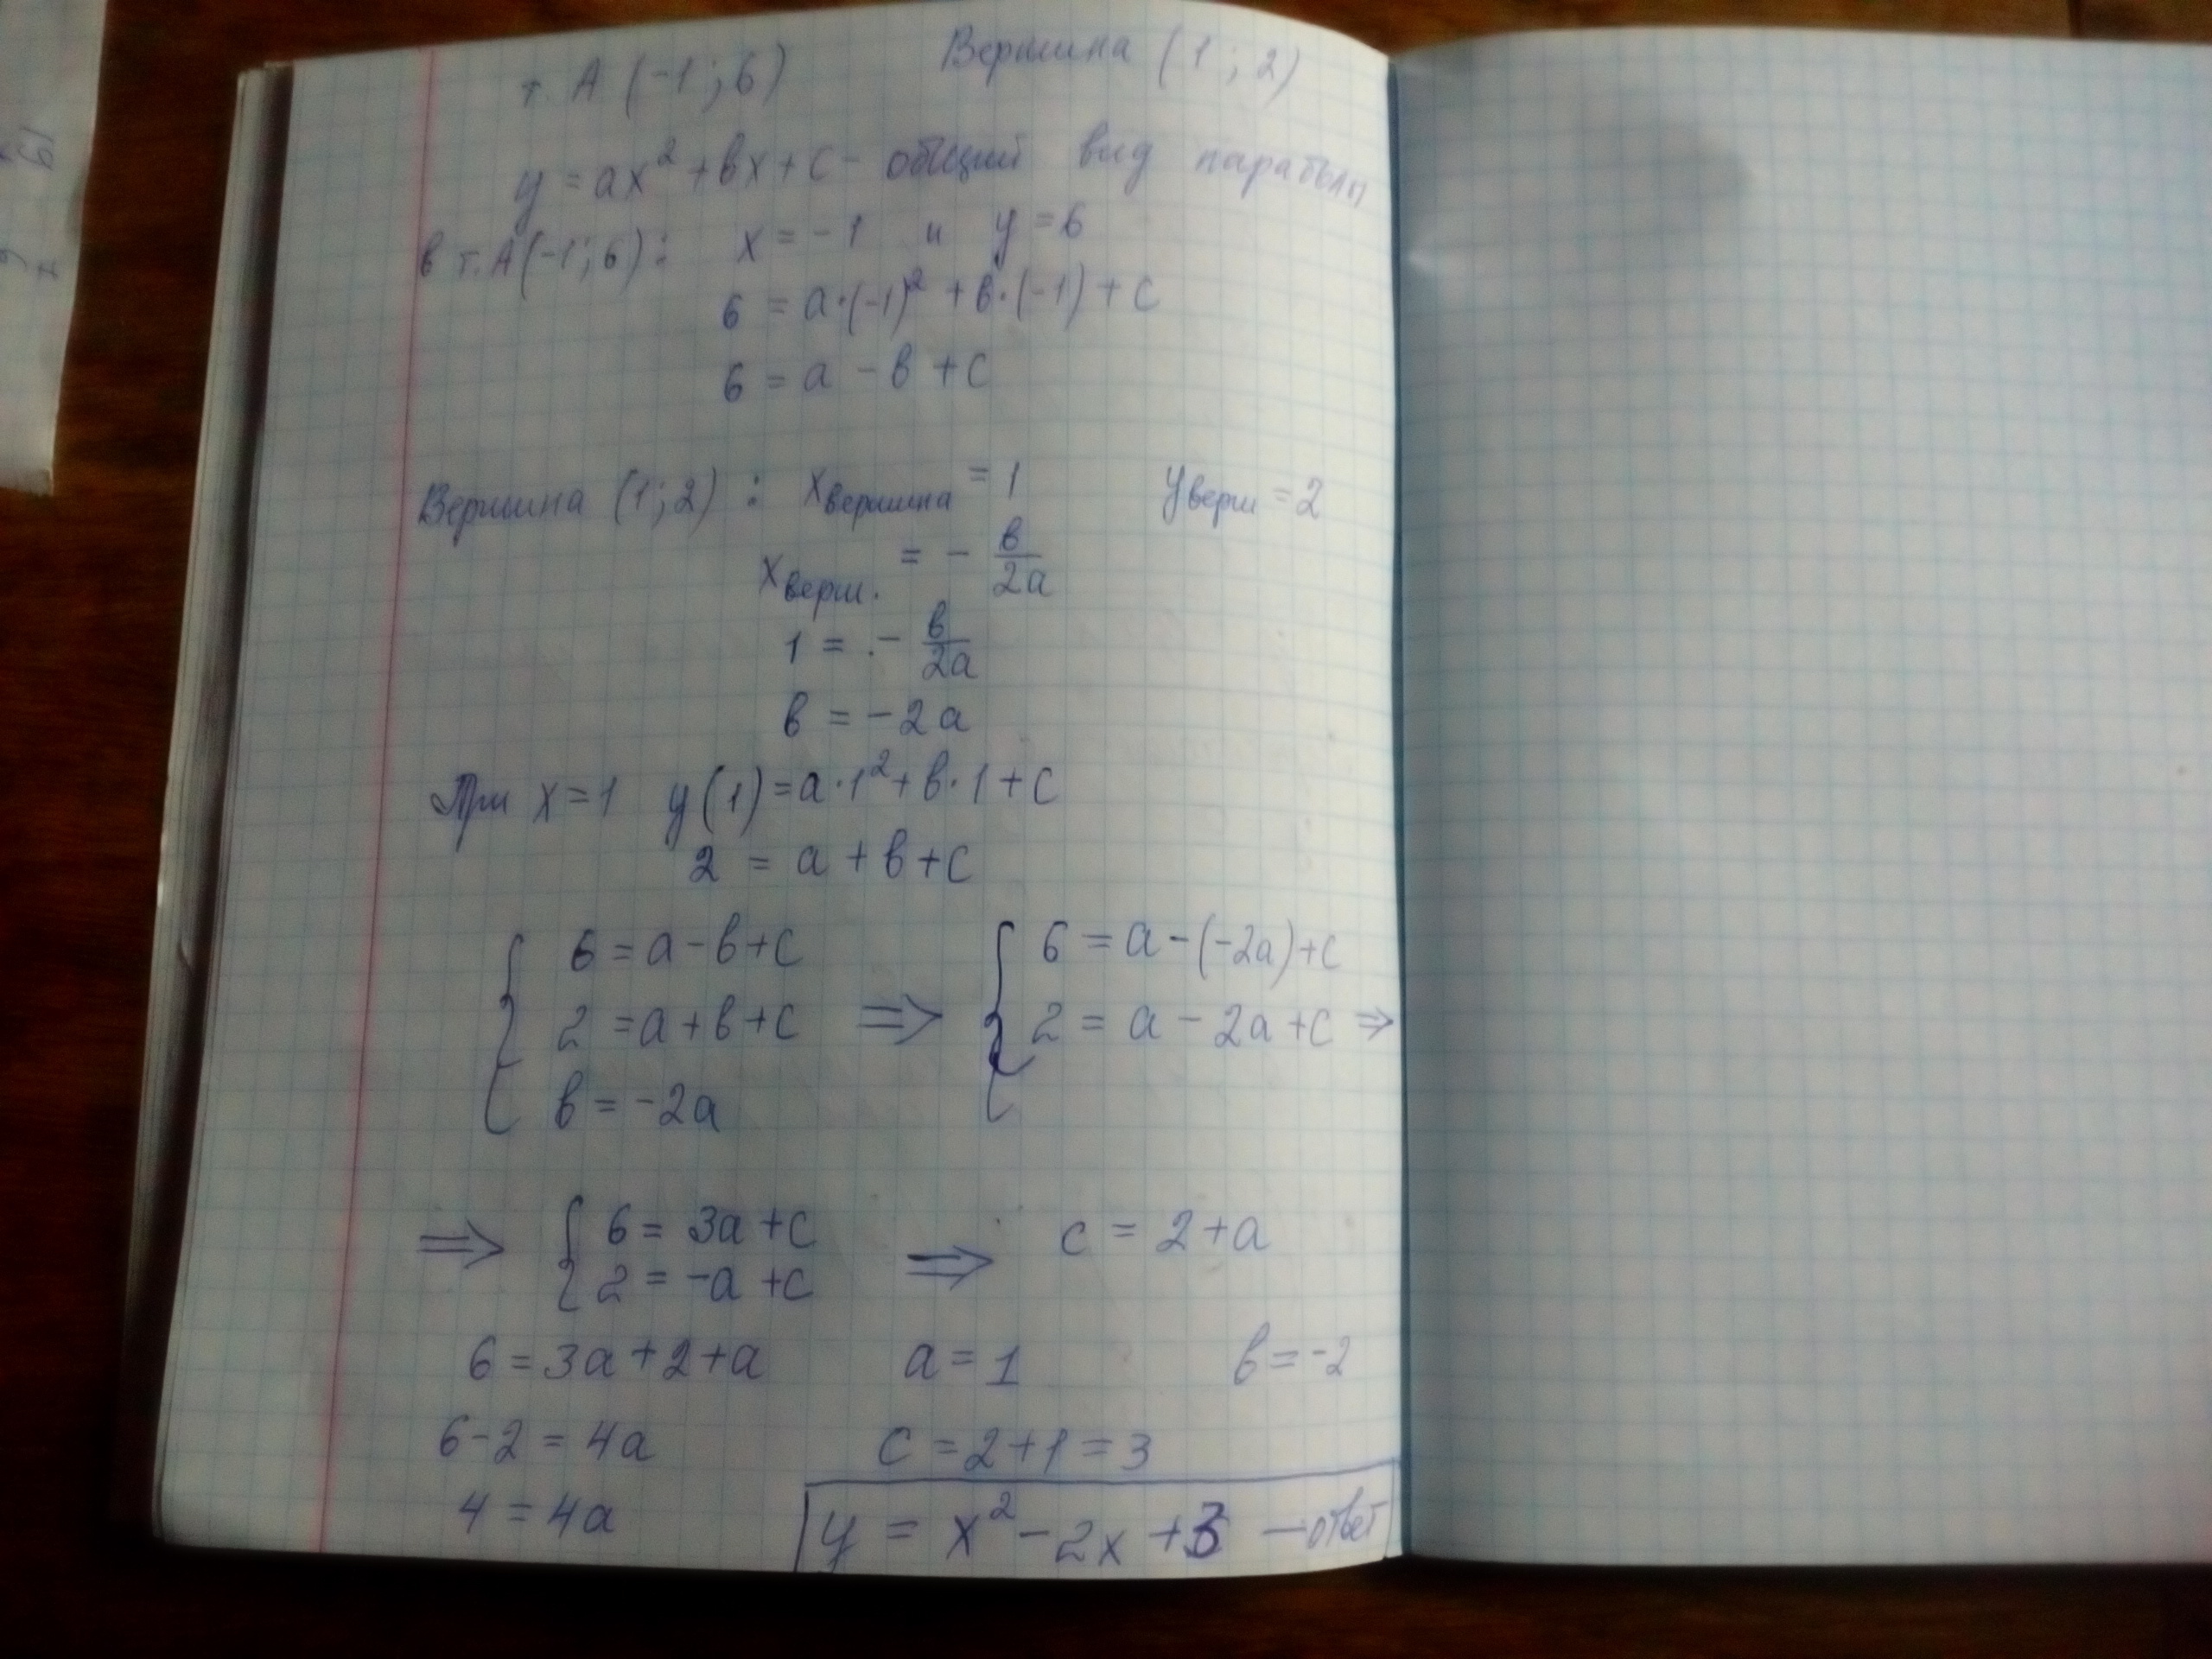 т. А (-1; 6) Вершина (1; 2)
y = ax² + вx + c - общий вид параболы
в т. А (-1; 6): x = -1 и y = 6
6 = a·(-1)² + в·(-1) + c
6 = a - в + c
Вершина (1; 2) : xвершина = 1 yверш = 2
xверш. = - в/2a
1 = - в/2a
в = -2a
При x = 1 y(1) = a·1² + в·1 + c
2 = a + в + c
{ 6 = a - в + c { 6 = a - (-2a) + c
2 = a + в + c ⇒ 2 = a - 2a + c ⇒
в = -2a
⇒ { 6 = 3a + c ⇒ c = 2 + a
2 = -a + c
6 = 3a + 2 + a a = 1 в = -2
6 - 2 = 4a c = 2 + 1 = 3
4 = 4a y = x² - 2x + 3 — ответ